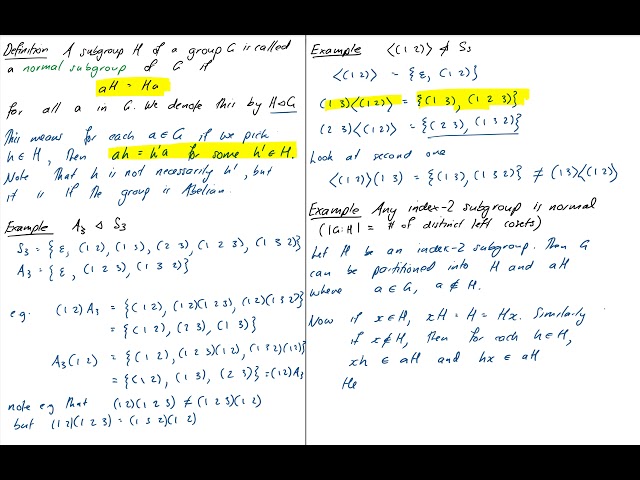 Definition A subgroup H of a group G is called
a normal subgroup of G if
aH = Ha
for all a in G. We denote this by H◁G
This means for each a∈G if we pick
h∈H, then ah = h'a for some h'∈H.
Note that h is not necessarily h', but
it is if the group is Abelian.
Example A₃ ◁ S₃
S₃ = {ε, (1 2), (1 3), (2 3), (1 2 3), (1 3 2)}
A₃ = {ε, (1 2 3), (1 3 2)}
e.g. (1 2)A₃ = {(1 2), (1 2)(1 2 3), (1 2)(1 3 2)}
= {(1 2), (2 3), (1 3)}
A₃(1 2) = {(1 2), (1 2 3)(1 2), (1 3 2)(1 2)}
= {(1 2), (1 3), (2 3)} = (1 2)A₃
note e.g that (1 2)(1 2 3) ≠ (1 2 3)(1 2)
but (1 2)(1 2 3) = (1 3 2)(1 2)
Example ⟨(1 2)⟩ ⋪ S₃
⟨(1 2)⟩ = {ε, (1 2)}
(1 3)⟨(1 2)⟩ = {(1 3), (1 2 3)}
(2 3)⟨(1 2)⟩ = {(2 3), (1 3 2)}
Look at second one
⟨(1 2)⟩(1 3) = {(1 3), (1 3 2)} ≠ (1 3)⟨(1 2)⟩
Example Any index-2 subgroup is normal
(|G:H| = # of distinct left cosets)
Let H be an index-2 subgroup. Then G
can be partitioned into H and aH
where a∈G, a∉H.
Now if x∈H, xH = H = Hx. Similarly
if x∉H, then for each h∈H,
xh ∈ aH and hx ∈ aH
He